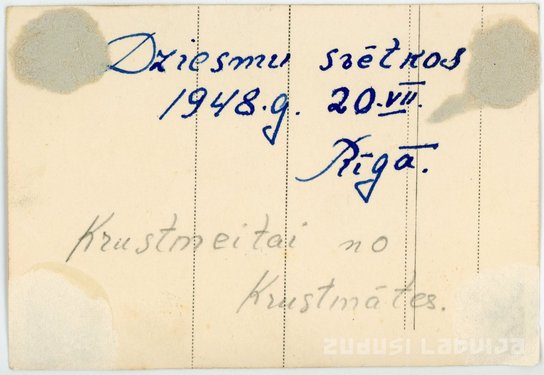 Dziesmu svētkos
1948.g. 20.VII.
Rīgā.
Krustmeitai no
Krustmātes.
ZUDUSI LATVIJA